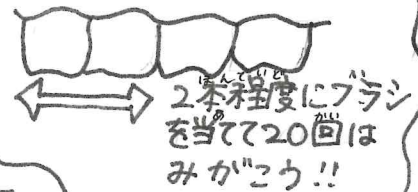 2本程度にブラシ
を当てて20回は
みがこう!!